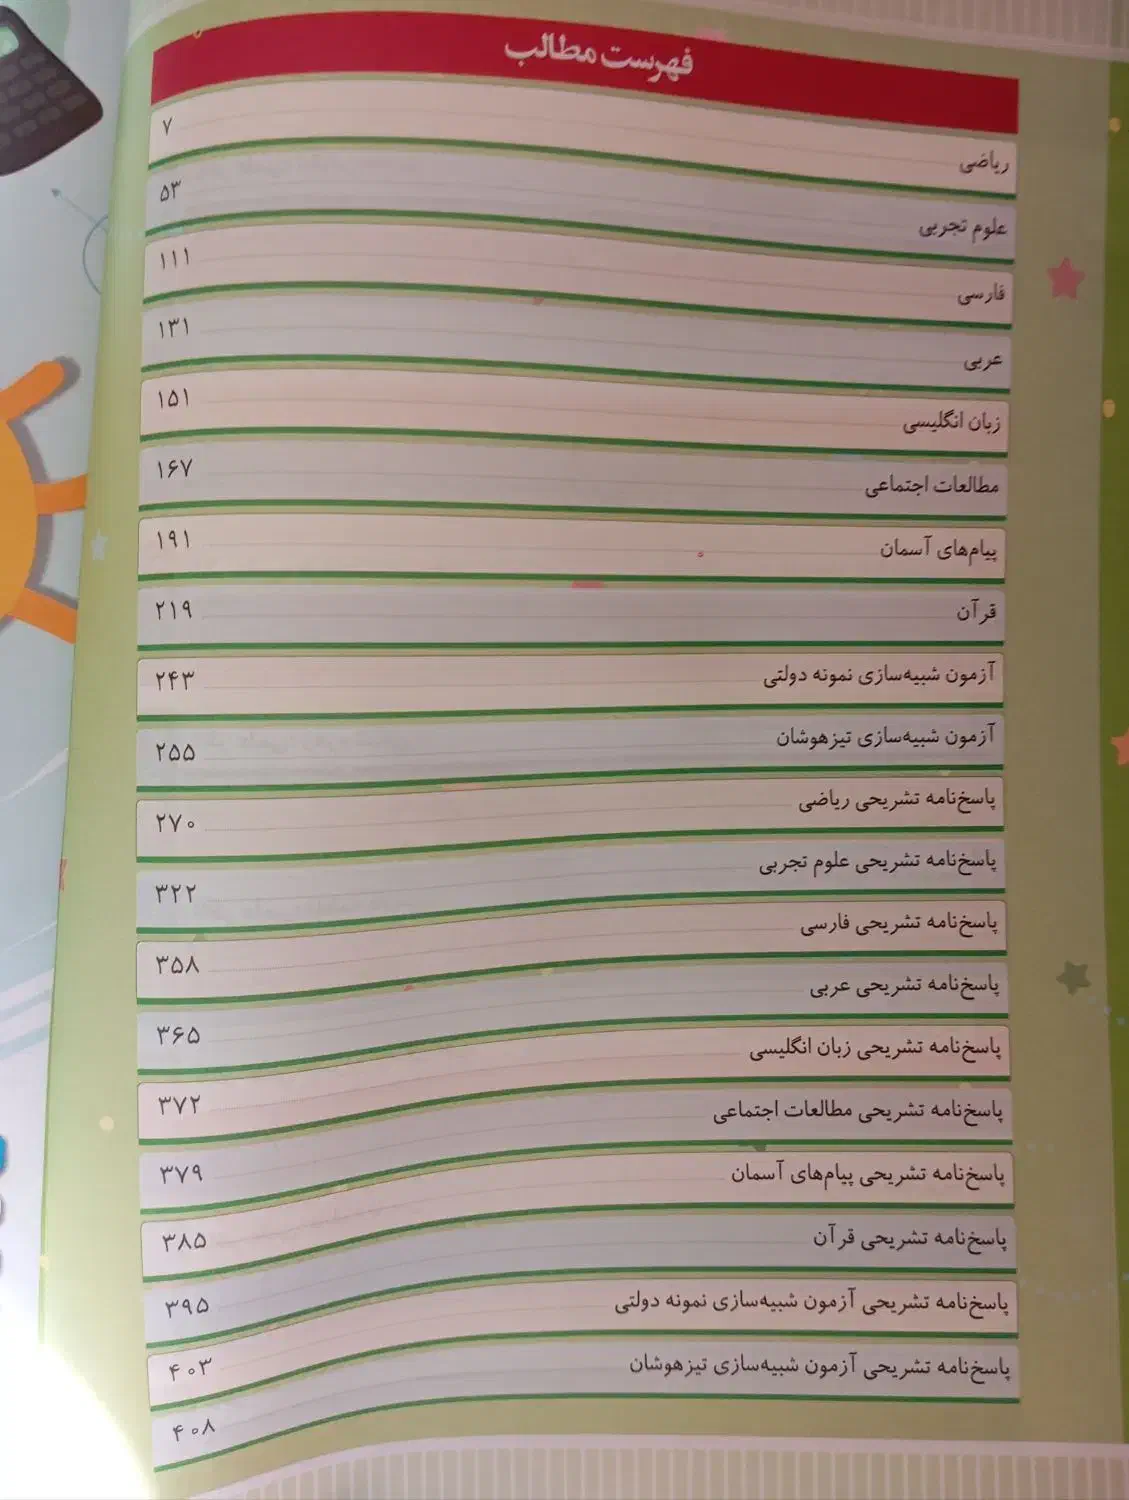 فهرست مطالب
ریاضی ۷
علوم تجربی ۵۳
فارسی ۱۱۱
عربی ۱۳۱
زبان انگلیسی ۱۵۱
مطالعات اجتماعی ۱۶۷
پیام‌های آسمان ۱۹۱
قرآن ۲۱۹
آزمون شبیه‌سازی نمونه دولتی ۲۴۳
آزمون شبیه‌سازی تیزهوشان ۲۵۵
پاسخ‌نامه تشریحی ریاضی ۲۷۰
پاسخ‌نامه تشریحی علوم تجربی ۳۲۲
پاسخ‌نامه تشریحی فارسی ۳۵۸
پاسخ‌نامه تشریحی عربی ۳۶۵
پاسخ‌نامه تشریحی زبان انگلیسی ۳۷۲
پاسخ‌نامه تشریحی مطالعات اجتماعی ۳۷۹
پاسخ‌نامه تشریحی پیام‌های آسمان ۳۸۵
پاسخ‌نامه تشریحی قرآن ۳۹۵
پاسخ‌نامه تشریحی آزمون شبیه‌سازی نمونه دولتی ۴۰۳
پاسخ‌نامه تشریحی آزمون شبیه‌سازی تیزهوشان ۴۰۸